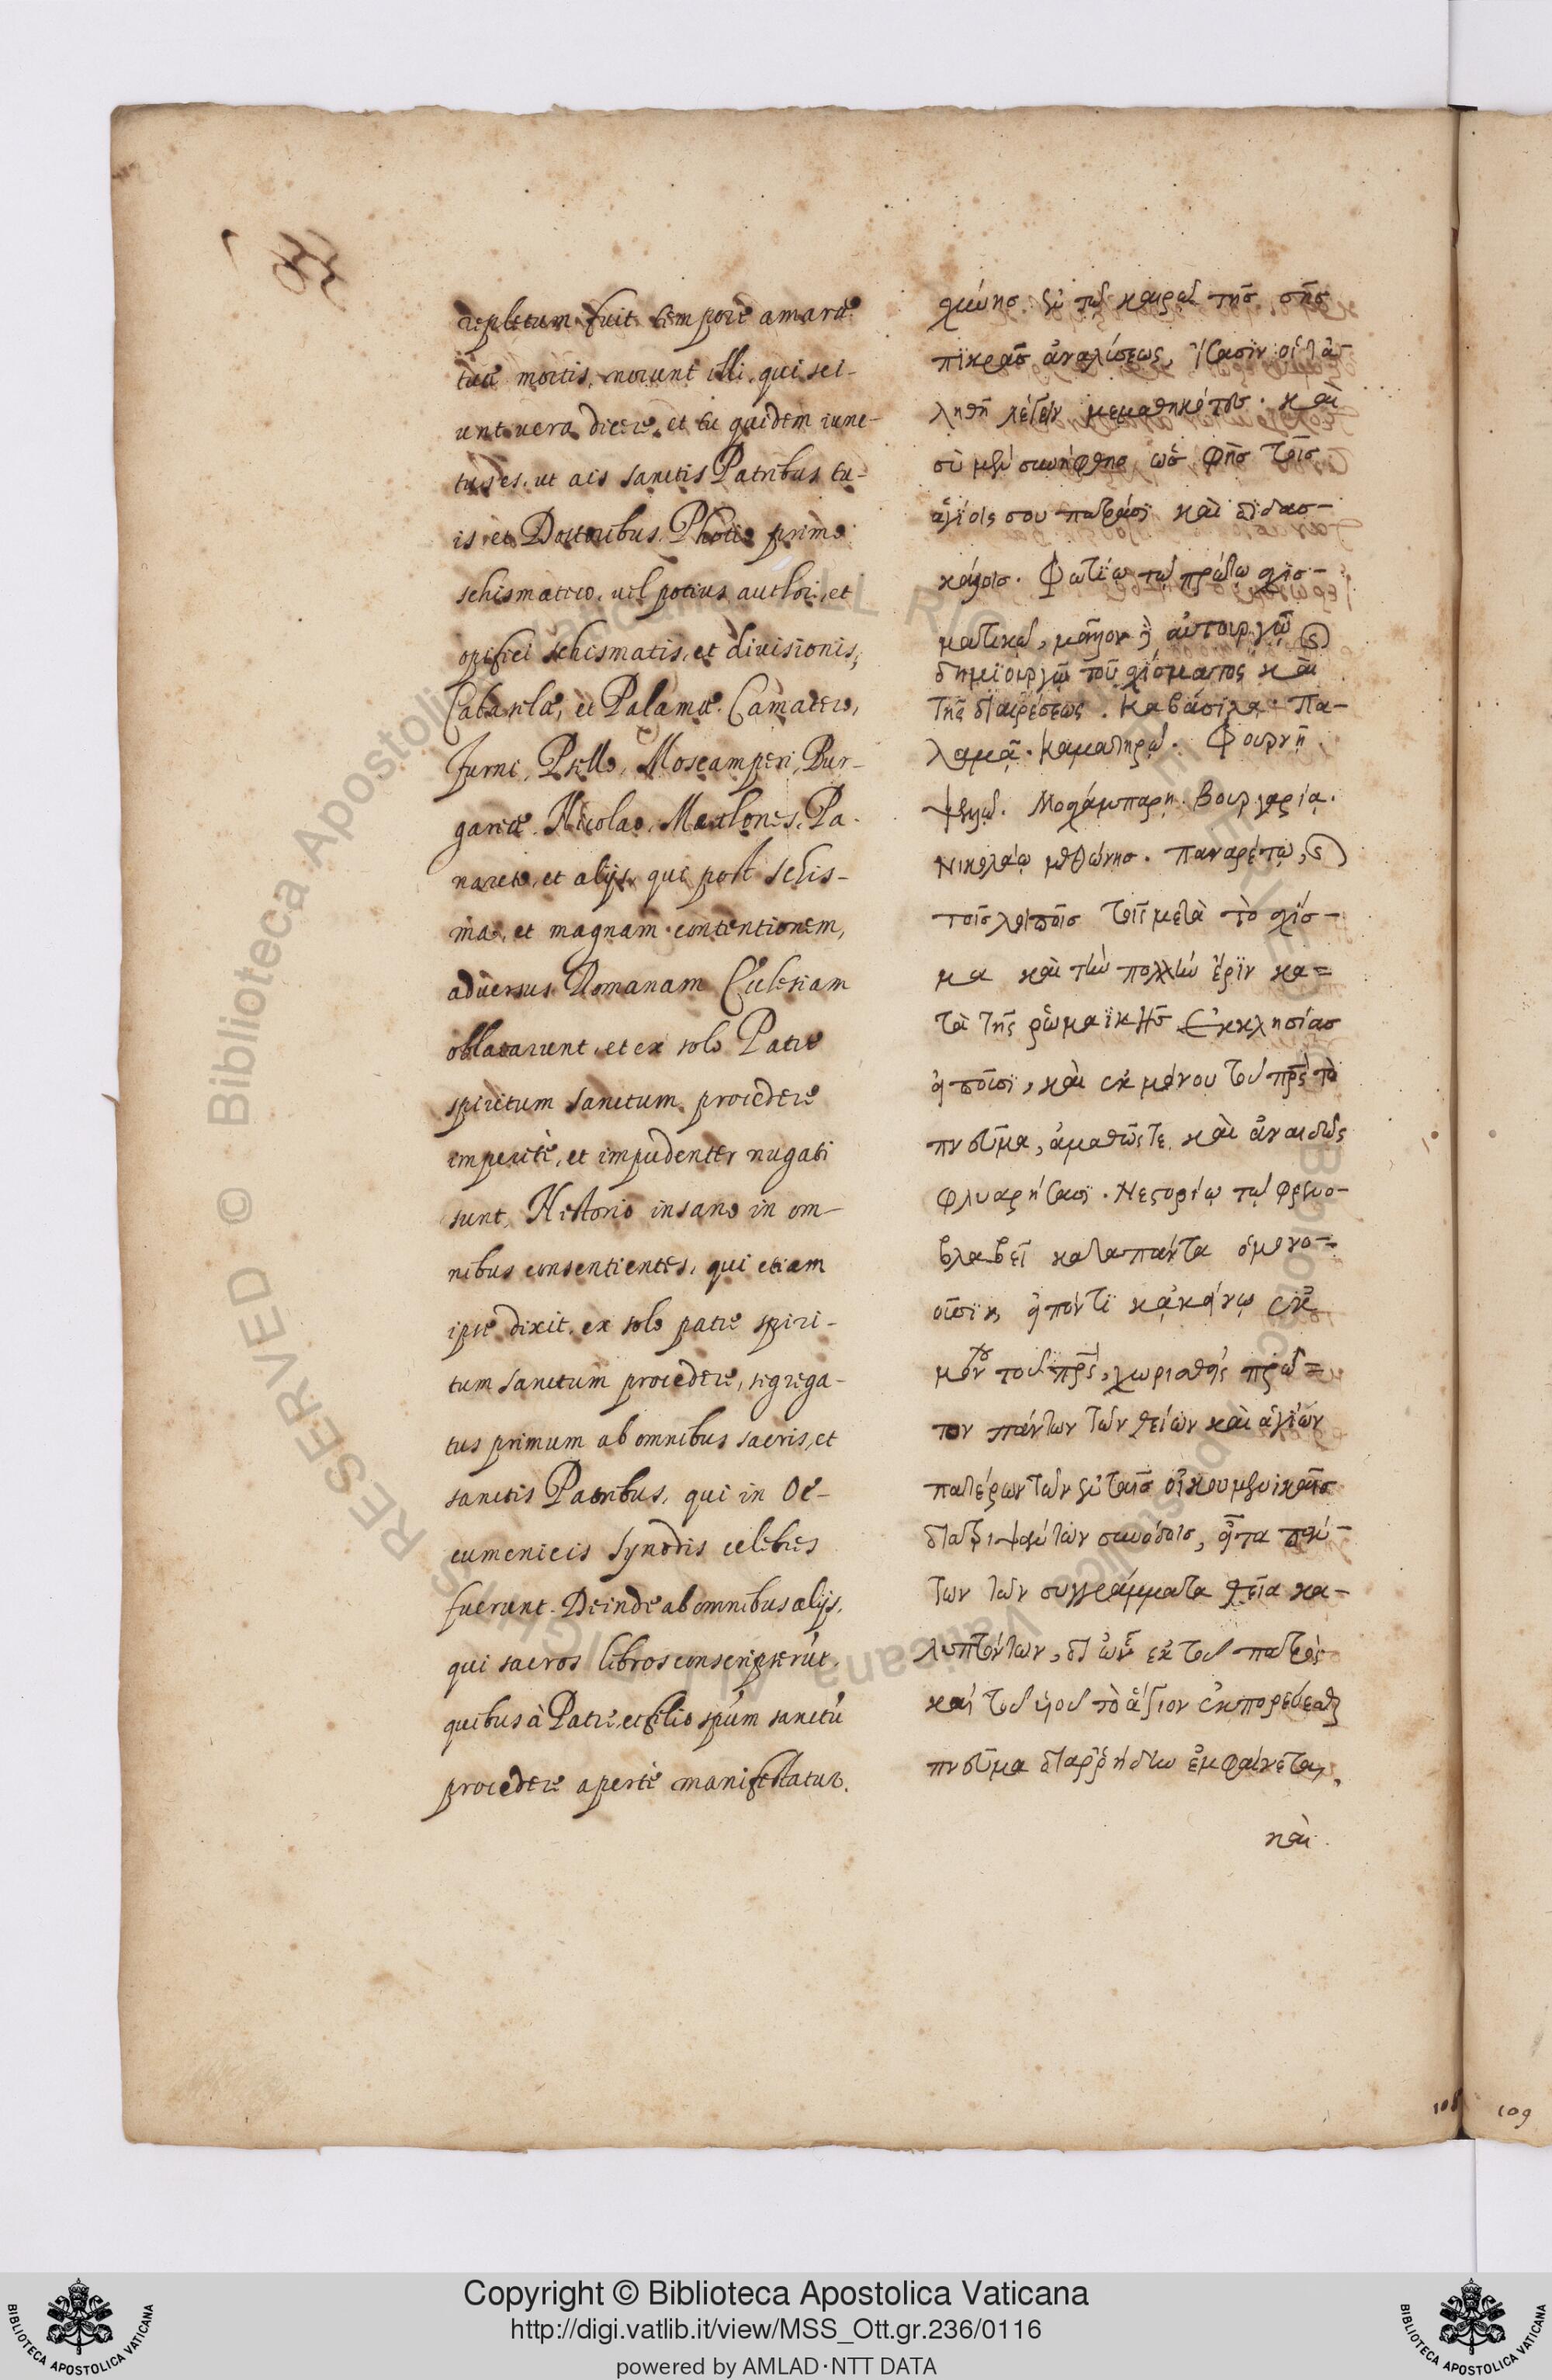 repletum fuit tempore amarae
tuae mortis, norunt illi, qui sci-
unt vera dicere, et tu quidem iunc-
tus es, ut ais sanctis Patribus tu-
is et Doctoribus, Photio primo
schismatico, vel potius authori, et
opifici schismatis, et divisionis,
Cabasilae, et Palamae. Camatero,
Furni, Psello, Moscamperi, Bur-
gariae. Nicolao, Methones, Pa-
nareto, et alijs qui post schis-
ma, et magnam contentionem,
adversus Romanam Ecclesiam
oblatrarunt, et ex solo Patre
spiritum sanctum procedere
imperitè, et impudenter nugati
sunt, Nestorio insano in om-
nibus consentientes, qui etiam
ipse dixit, ex solo patre spiri-
tum sanctum procedere, segrega-
tus primum ab omnibus sacris, et
sanctis Patribus, qui in Oe-
cumenicis synodis celebres
fuerunt. Deinde ab omnibus alijs,
qui sacros libros conscripserũt,
quibus à Patre, et filio spũm sanctũ
procedere apertè manifestatur.
τῷ καιρῷ τῆς σῆς
πικρᾶς ἀναλύσεως, ἴσασιν οἱ τἀ-
ληθῆ λέγειν μεμαθηκότες. καὶ
σὺ μὲν συνήφθης ὡς φῂς τοῖς
ἁγίοις σου πατράσι καὶ διδασ-
κάλοις. Φωτίῳ τῷ πρώτῳ σχισ-
ματικῷ, μᾶλλον δὲ αὐτουργῷ καὶ
δημιουργῷ τοῦ σχίσματος καὶ
τῆς διαιρέσεως. Καβάσιλα. Πα-
λαμᾷ. Καματηρῷ. Φουρνῇ.
Ψελλῷ. Μοσχάμπαρη. Βουργαρία.
Νικολάῳ Μεθώνης. Παναρέτῳ, καὶ
τοῖς λοιποῖς τοῖς μετὰ τὸ σχίσ-
μα καὶ τὴν πολλὴν ἔριν κα=
τὰ τῆς ῥωμαϊκῆς Ἐκκλησίας
εἰποῦσι, καὶ ἐκ μόνου τοῦ πρς τὸ
πνεῦμα, ἀμαθῶς τε καὶ ἀναιδῶς
φλυαρήσασι. Νεστορίῳ τῷ φρενο-
βλαβεῖ καταπάντα ὁμονο-
οῦσι εἰπόντι κἀκείνῳ ἐκ
μόνου τοῦ πρς, χωρισθεὶς πρῶ=
τον πάντων τῶν θείων καὶ ἁγίων
πατέρων τῶν ἐν ταῖς οἰκουμενικαῖς
διαπρεψάντων συνόδοις, εἶτα πάν-
των τῶν συγγράμματα θεῖα κα-
δι' ὧν ἐκ τοῦ πατρὸς
καὶ τοῦ υἱοῦ τὸ ἅγιον ἐκπορεύεσθαι
πνεῦμα διαρρήδην ἐμφαίνεται.
καὶ
108
109
© Biblioteca Apostolica Vaticana ALL RIGHTS RESERVED
Copyright © Biblioteca Apostolica Vaticana
http://digi.vatlib.it/view/MSS_Ott.gr.236/0116
powered by AMLAD·NTT DATA
BIBLIOTECA APOSTOLICA VATICANA
BIBLIOTECA APOSTOLICA VATICANA